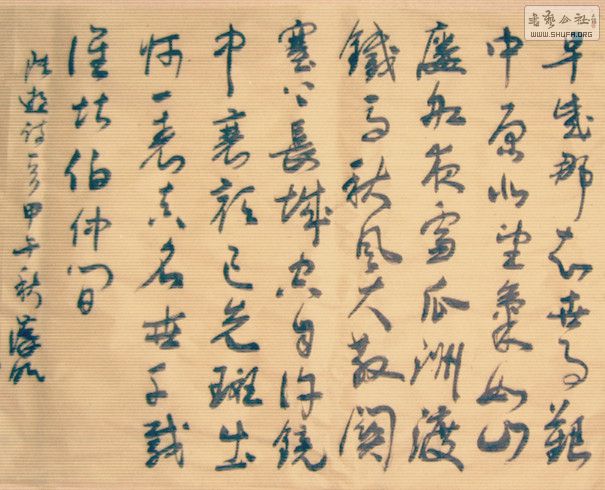 書藝公社
WWW.SHUFA.ORG
早歲那知世事艱
中原北望氣如山
樓船夜雪瓜洲渡
鐵馬秋風大散關
塞上長城空自許鏡
中衰鬢已先斑出
師一表真名世千載
誰堪伯仲間
陸游詩一首甲午秋